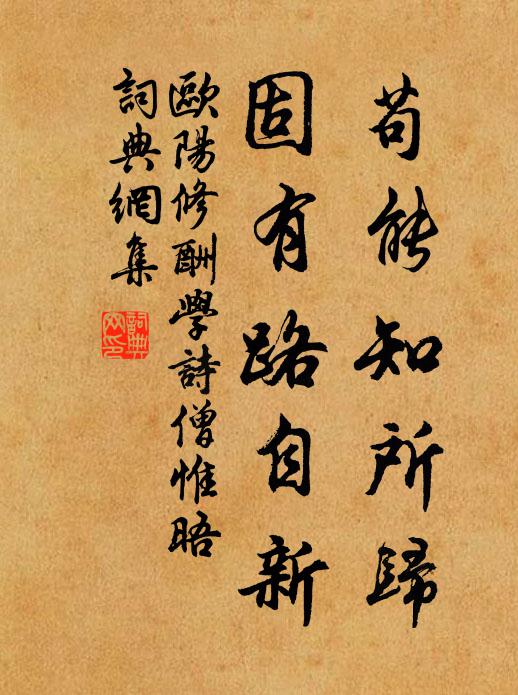 苟能知所歸
固有路自新
歐陽修酬學詩僧惟晤
詞典網集
詞典網印